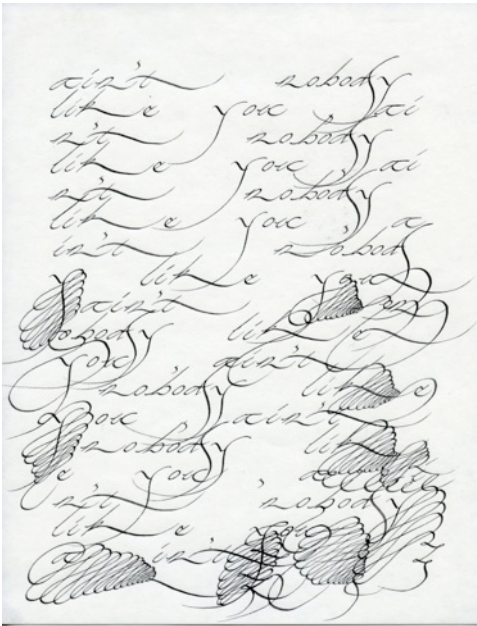 ain't nobody
like you ai
n't nobody
like you ai
n't nobody
like you a
in't nobod
y like you
ain't n
obody like
you ain't
nobody like
you ain't
nobody lik
e you ai
n't nobody
like you
ain't